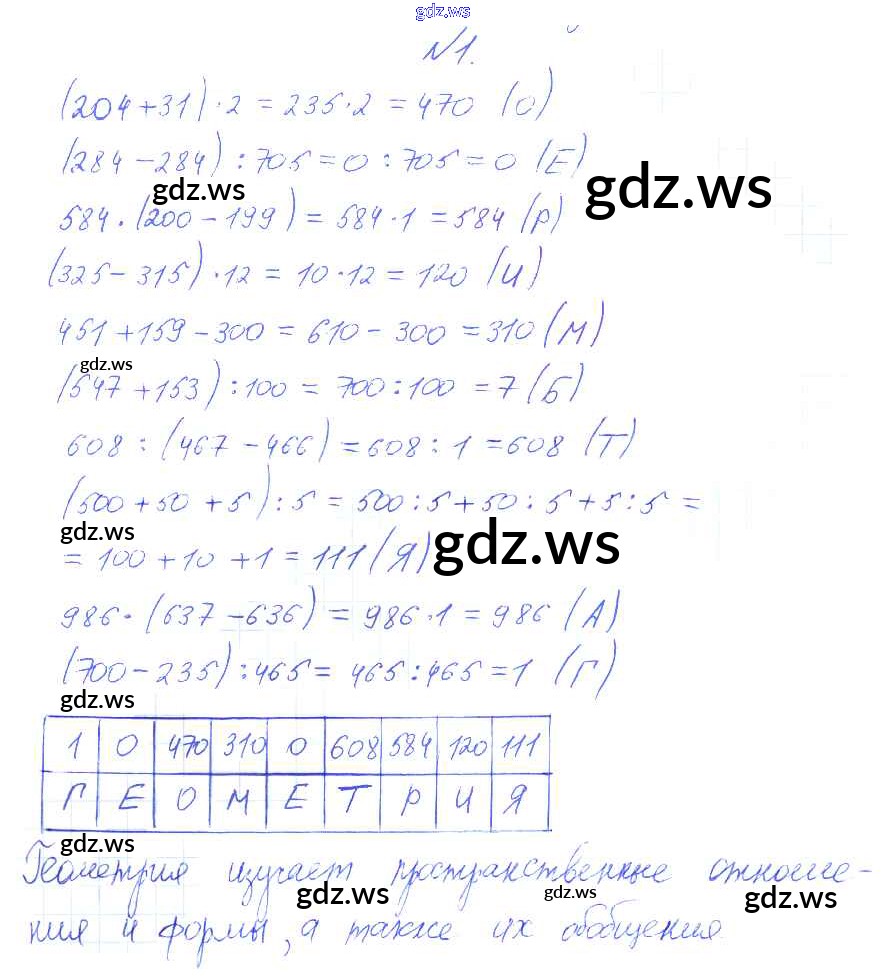 gdz.ws
№1.
(204+31)·2=235·2=470 (О)
(284-284):705=0:705=0 (Е)
gdz.ws
gdz.ws
584·(200-199)=584·1=584 (Р)
(325-315)·12=10·12=120 (И)
451+159-300=610-300=310 (М)
gdz.ws
(547+153):100=700:100=7 (Б)
608:(467-466)=608:1=608 (Т)
(500+50+5):5=500:5+50:5+5:5=
gdz.ws
gdz.ws
=100+10+1=111 (Я)
986·(637-636)=986·1=986 (А)
(700-235):465=465:465=1 (Г)
gdz.ws
1 0 470 310 0 608 584 120 111
Г Е О М Е Т Р И Я
gdz.ws
Геометрия изучает пространственные отноше-
gdz.ws
gdz.ws
gdz.ws
ния и формы, а также их обобщения